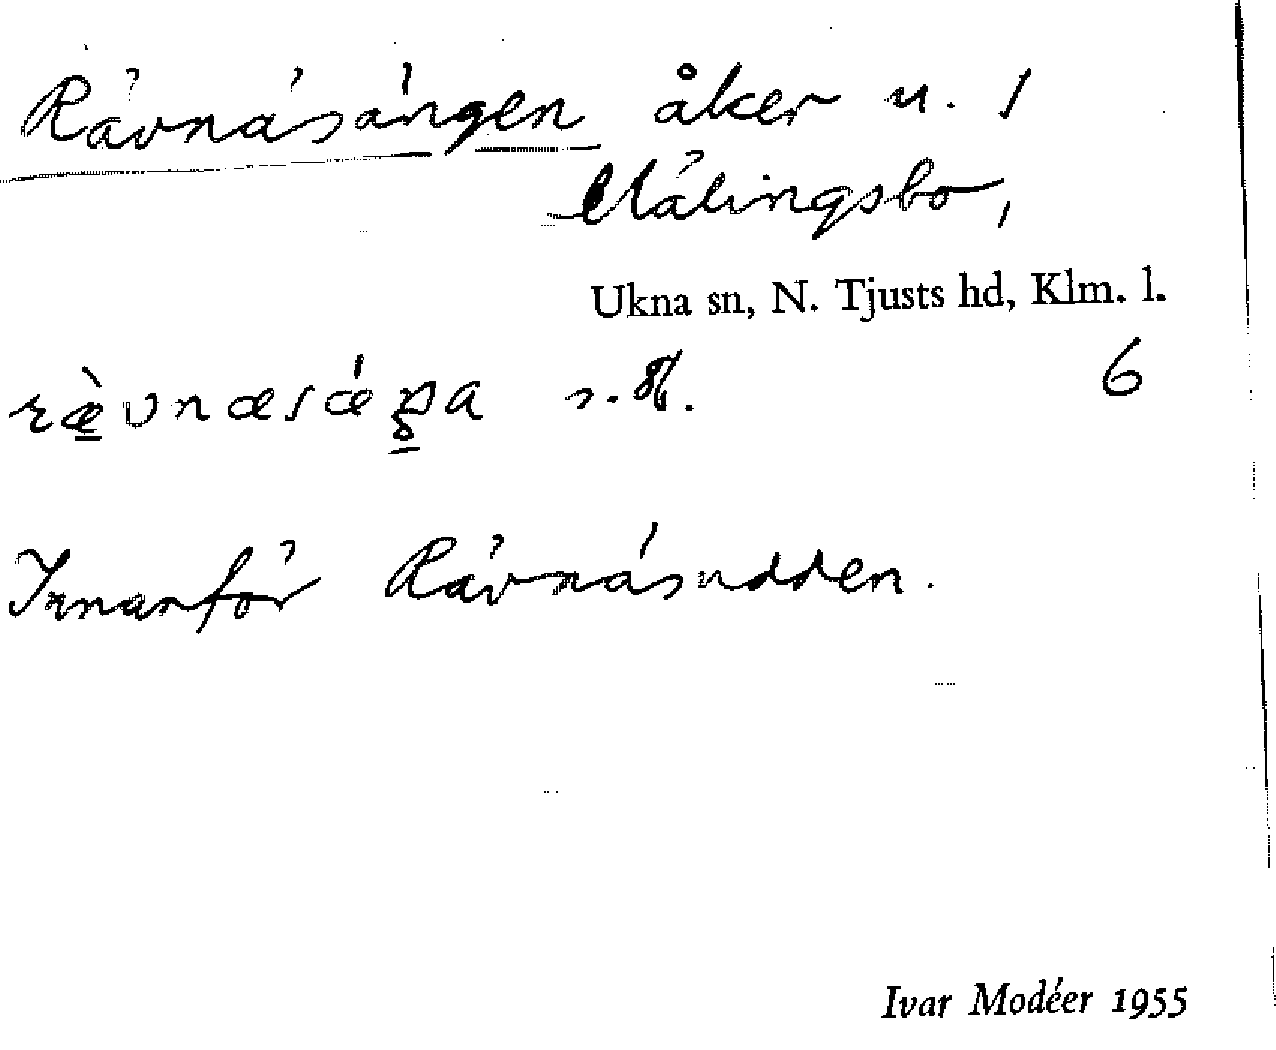 Rävnäsängen åker u. 1
Mälingsbo,
Ukna sn, N. Tjusts hd, Klm. l.
6
Innanför Rävnäsudden.
Ivar Modéer 1955